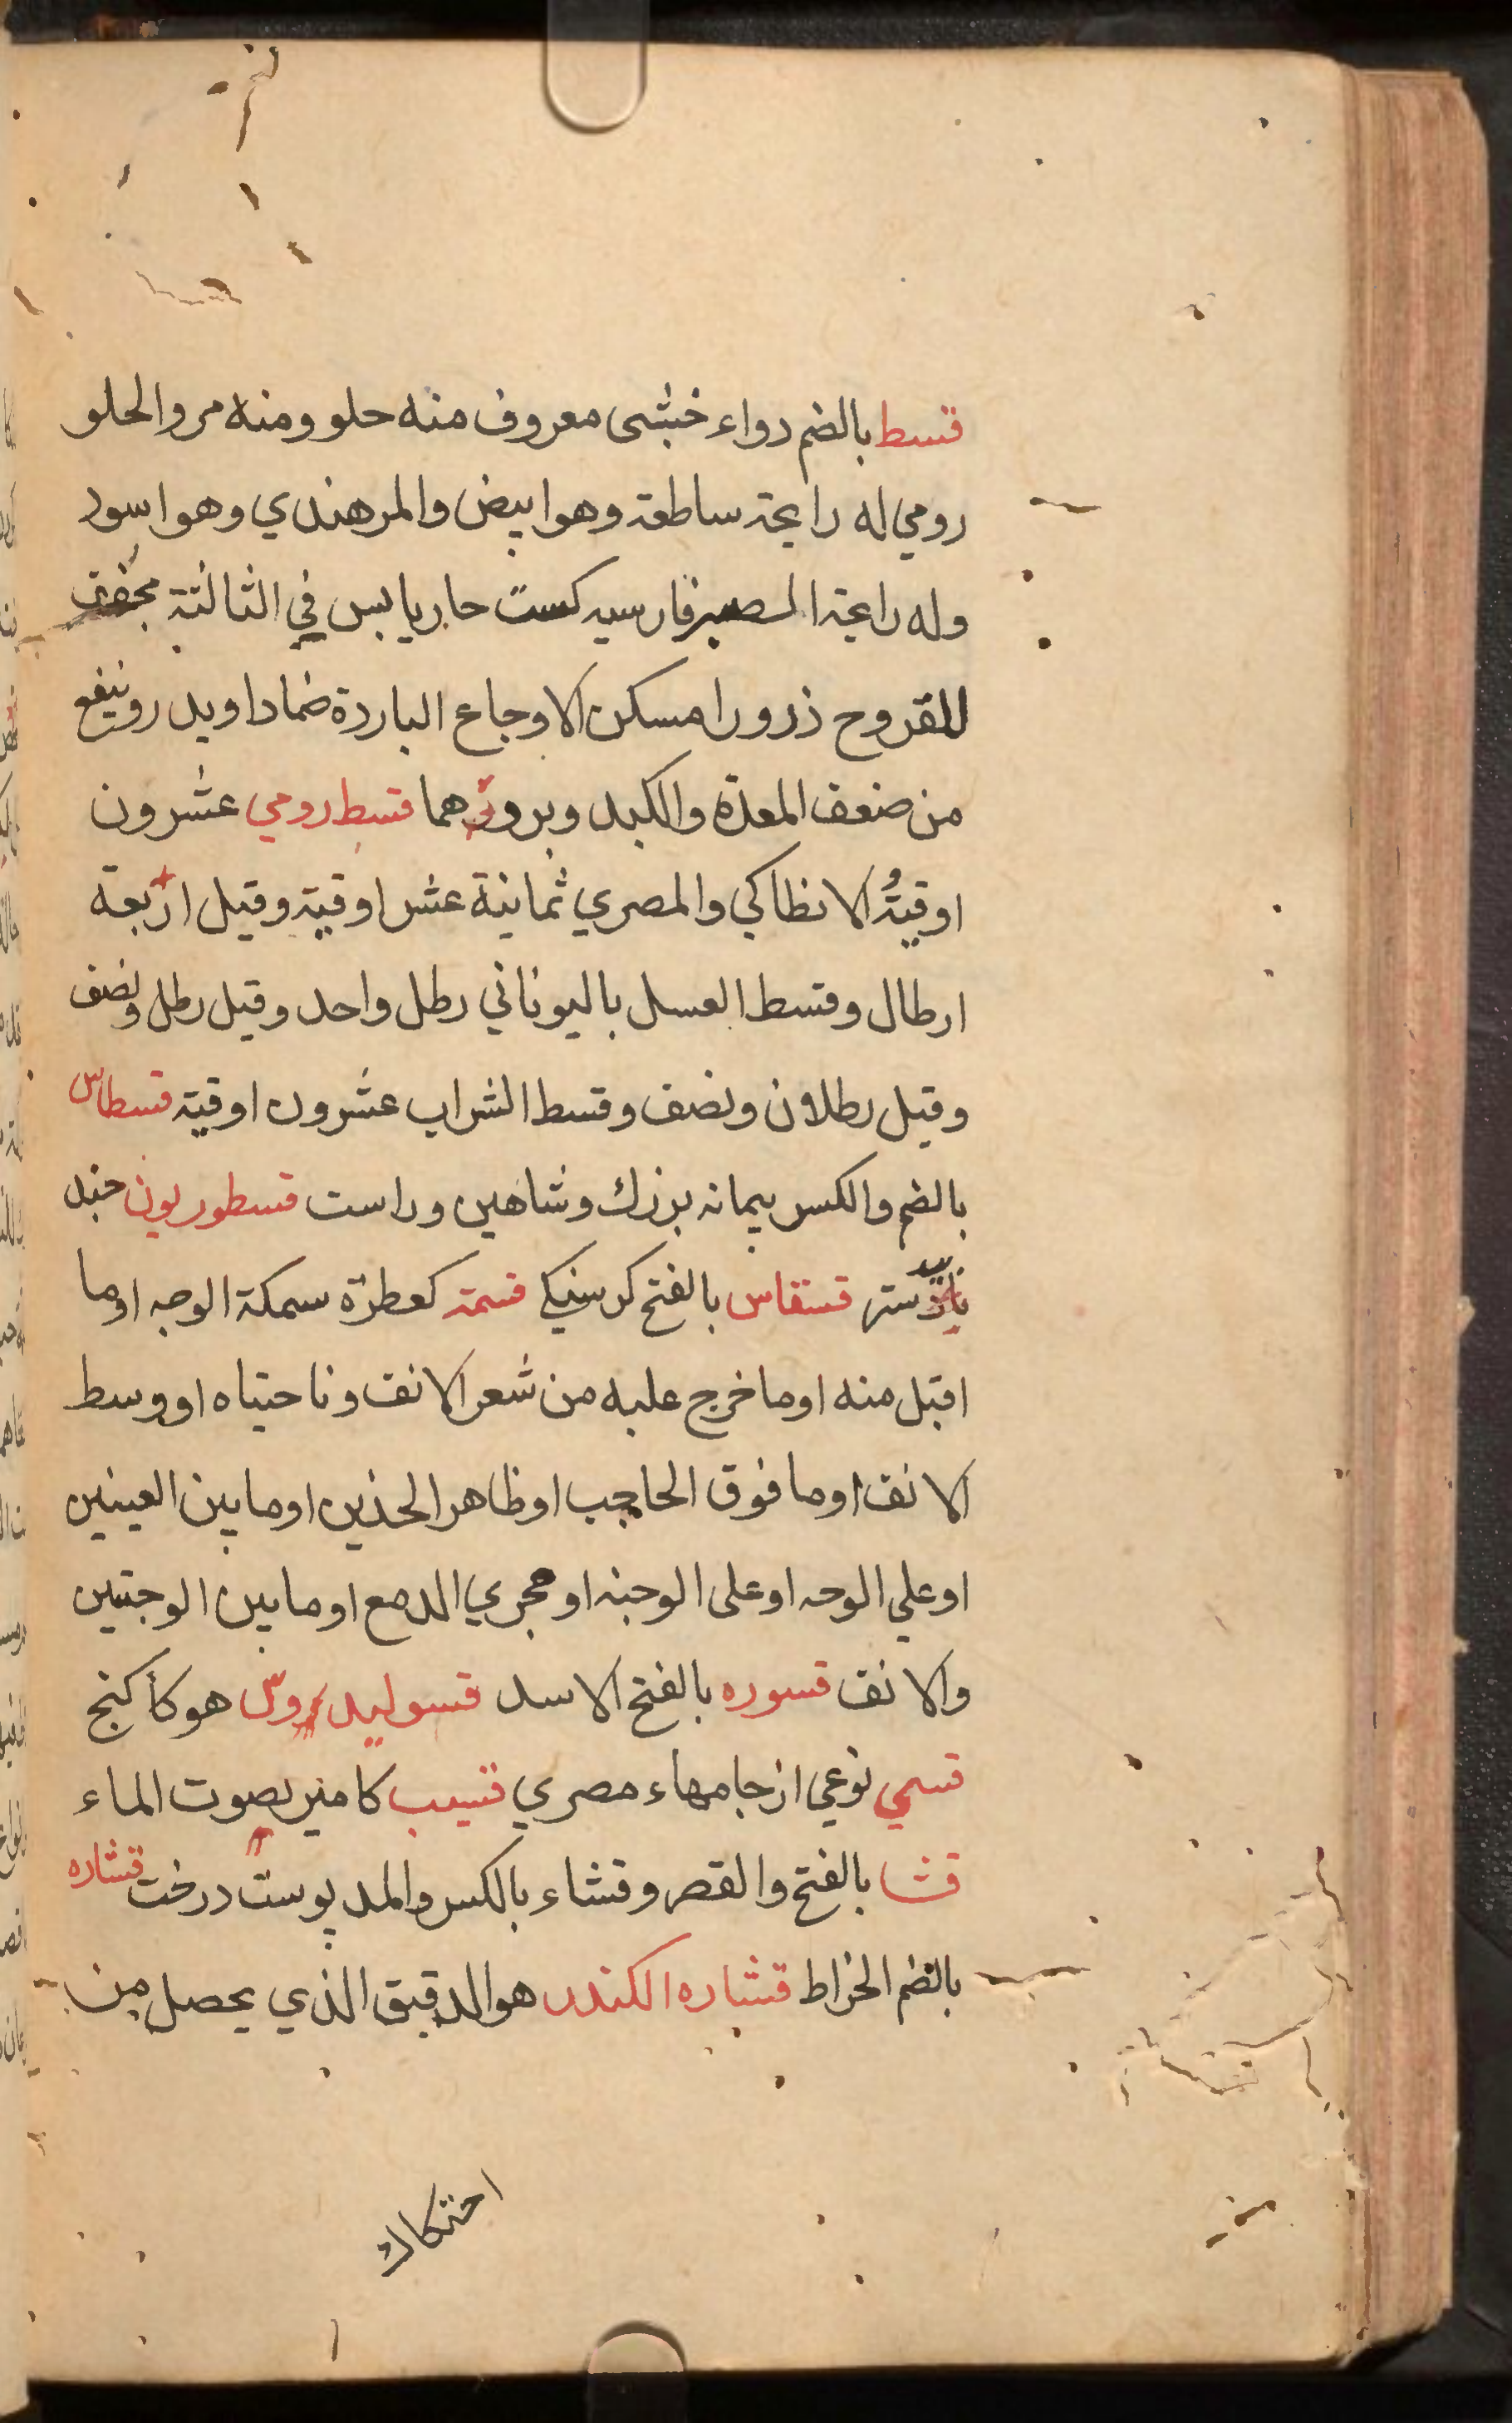 قسط بالضم دواء خشبى معروف منه حلو ومنه مر والحلو
رومي له رايحة ساطعة وهو ابيض والمر هندي وهو اسود
وله رايحة الصبر فارسيه كست حار يابس في الثالثة مجفف
للقروح ذرورا مسكن الاوجاع الباردة ضمادا ويدر وينفع
من ضعف المعدة والكبد وبرودتهما قسط رومي عشرون
اوقية والانطاكي والمصري ثمانية عشر اوقية وقيل اربعة
ارطال وقسط العسل باليوناني رطل واحد وقيل رطل ونصف
وقيل رطلان ونصف وقسط الشراب عشرون اوقية قسطاس
بالضم والكسر پيمانه بزرك وشاهين وراست قسطوريون جند
بيدستر قسقاس بالفتح كرسنكي قسمة كعطرة سمكة الوجه اوما
اقبل منه اوما خرج عليه من شعر الانف وناحيتاه او وسط
الانف اوما فوق الحاجب او ظاهر الخذين اوما بين العينين
او على الوجه او على الوجنه او مجري الدمع اوما بين الوجنتين
والانف قسوره بالفتح الاسد قسوليدروس هو كاكنج
قسي نوعي از جامهاء مصري قسيب كامير صوت الماء
قشا بالفتح والقصر وقشاء بالكسر والمد پوست درخت قشاره
بالضم الخراط قشاره الكندر هو الدقيق الذي يحصل من
احتكاك